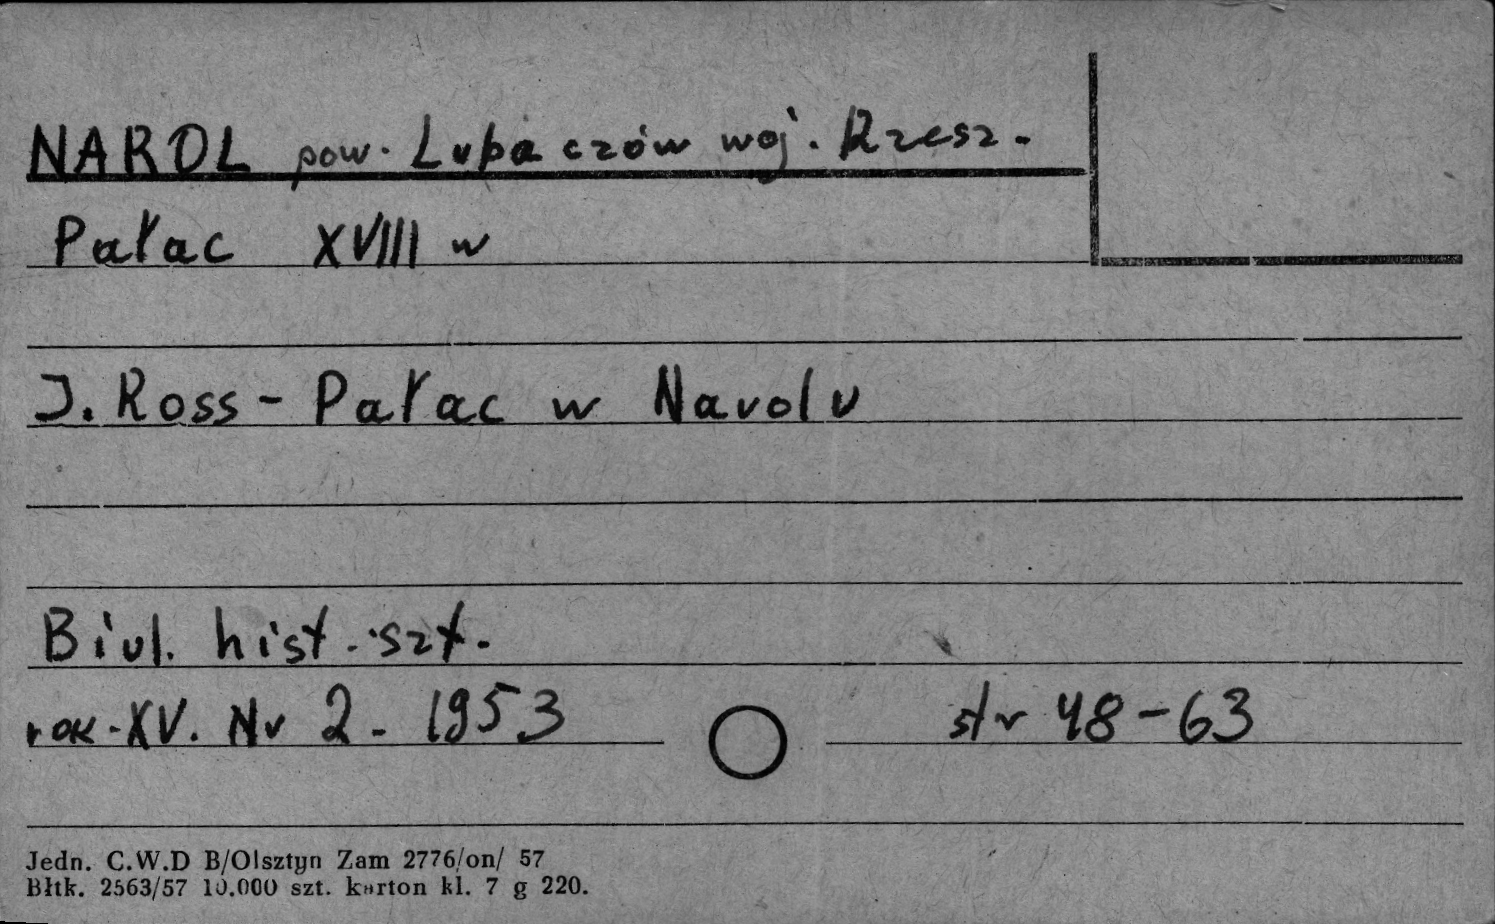 NAROL pow. Lubaczów woj. Rzesz.
Pałac XVIII w
J. Ross - Pałac w Narolu
Biul. hist. szt.
rok - XV. Nr 2 - 1953 str 48-63
Jedn. C.W.D B/Olsztyn Zam 2776/on/ 57
Błtk. 2563/57 10.000 szt. karton kl. 7 g 220.